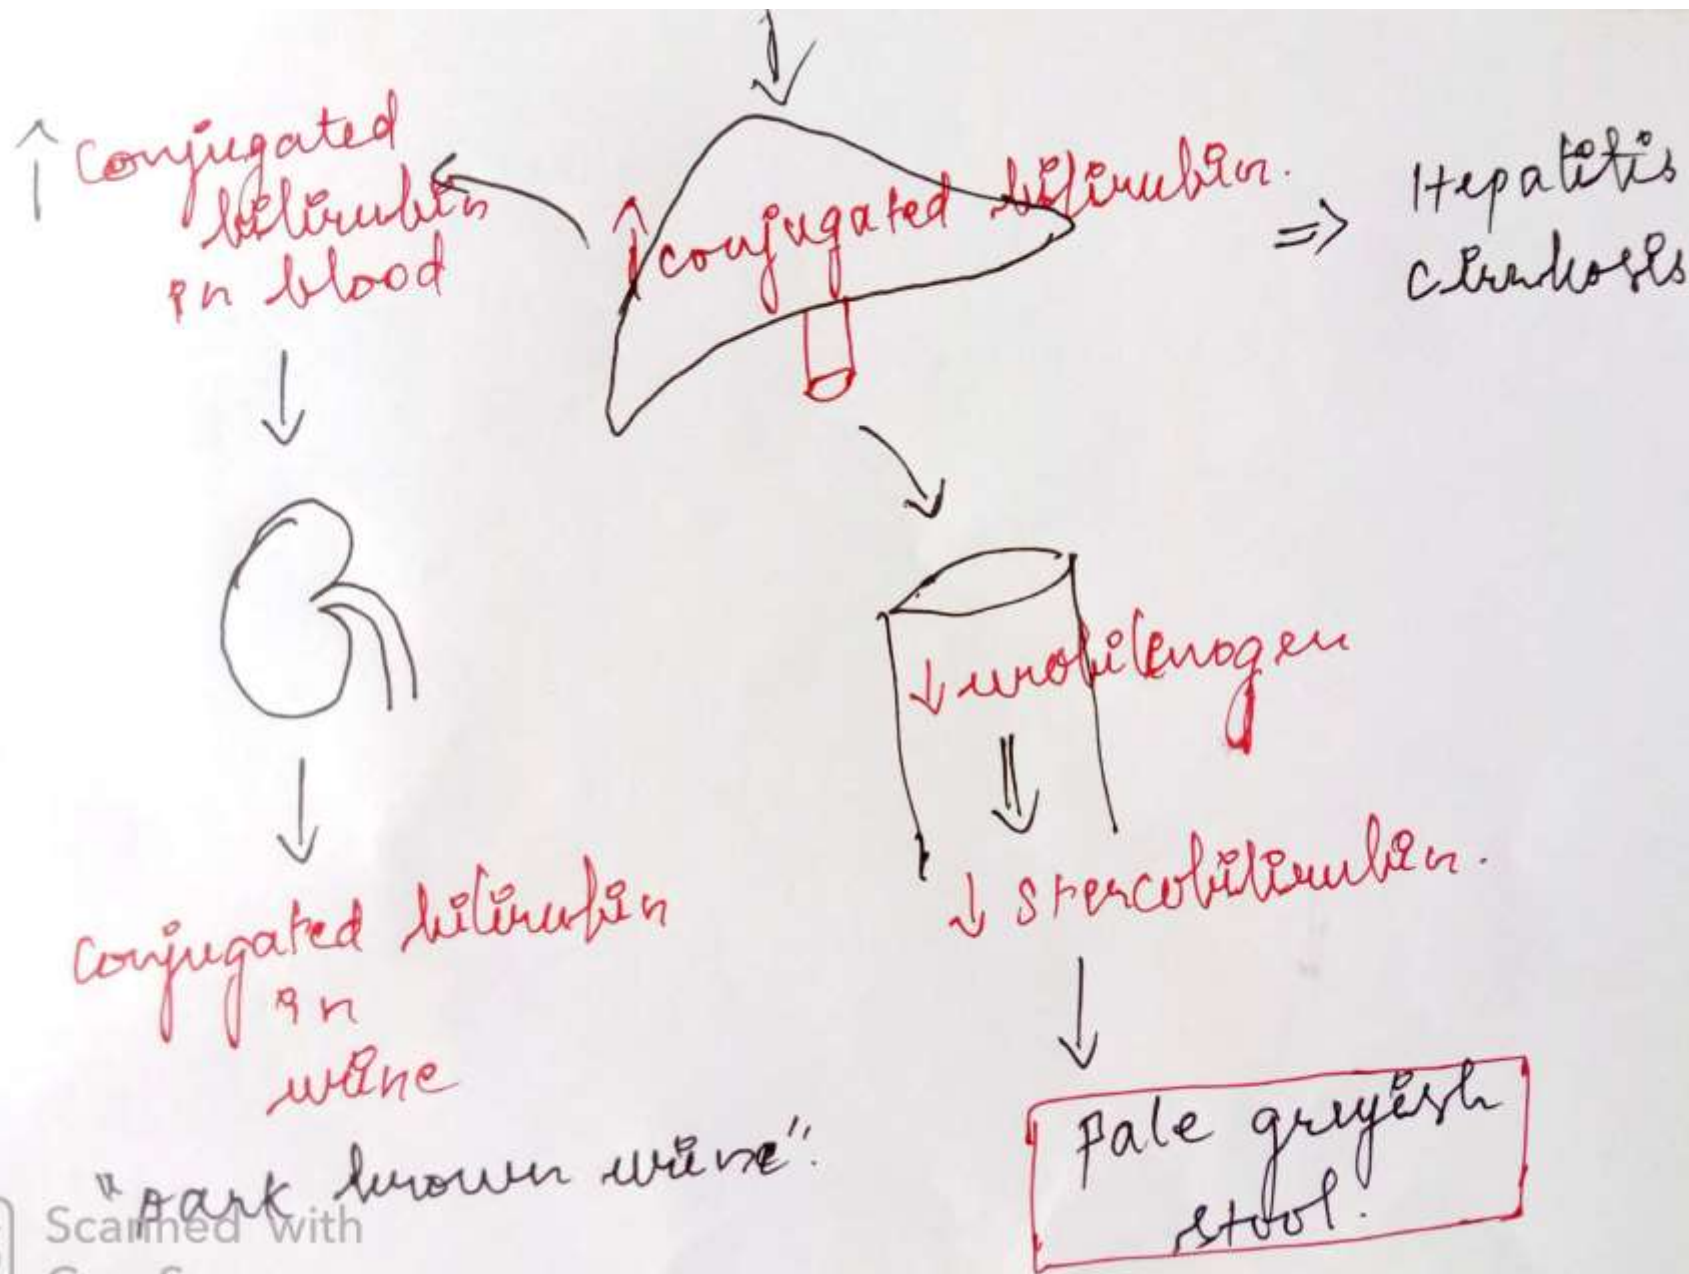 ↑ Conjugated
bilirubin
in blood
↑ conjugated bilirubin.
⇒ Hepatitis
cirrhosis
↓ urobilinogen
↓ Stercobilirubin.
Conjugated bilirubin
in
urine
"Dark brown urine".
Pale greyish
stool.
Scanned with